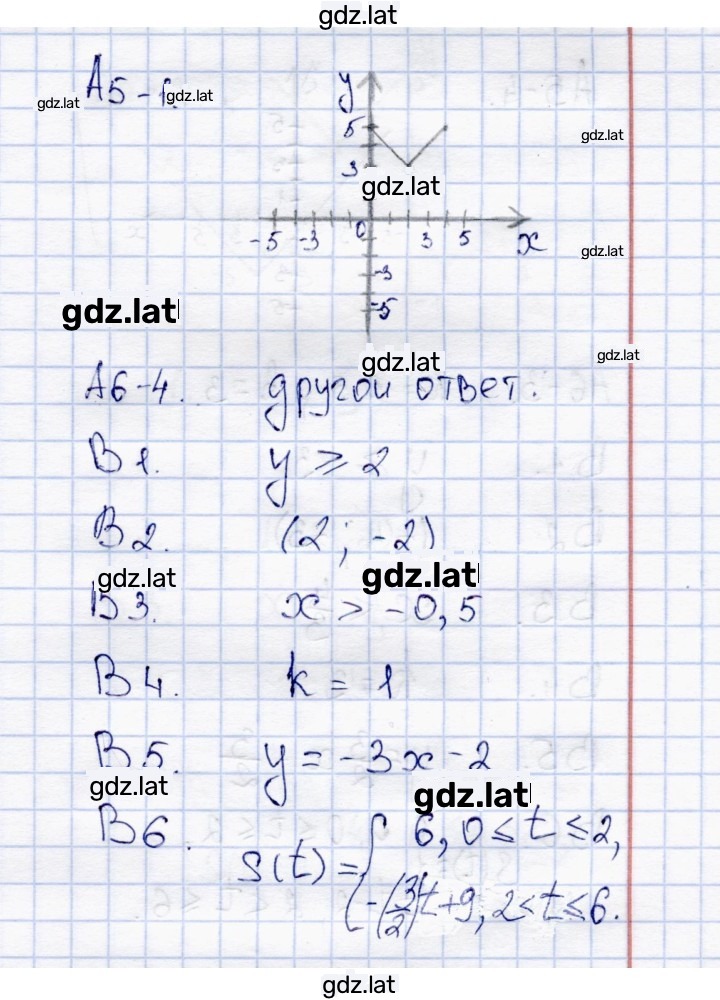 gdz.lat
А5-1. gdz.lat
gdz.lat
y
5
3
gdz.lat
gdz.lat
-5 -3 0 3 5 x
gdz.lat
-3
-5
gdz.lat
gdz.lat
gdz.lat
А6-4. другой ответ.
В1. y ⩾ 2
В2. (2; -2)
gdz.lat
gdz.lat
В3. x > -0,5
В4. k = 1
В5. y = -3x - 2
gdz.lat
gdz.lat
В6. S(t) = { 6, 0 ≤ t ≤ 2,
-(3/2)t+9, 2 < t ≤ 6.
gdz.lat